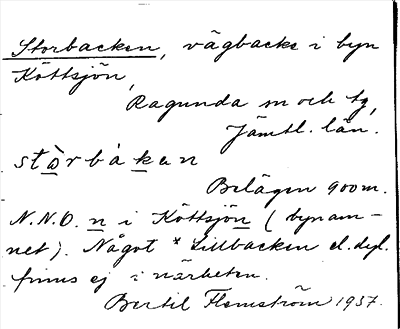 Storbacken, vägbacke i byn
Köttsjön,
Ragunda sn och tg,
Jämtl. län.
stòrbákən
Belägen 900 m.
N.N.O. n i Köttsjön (bynam-
net). Något *Lillbacken el. dyl.
finns ej i närheten.
Bertil Flemström 1957.